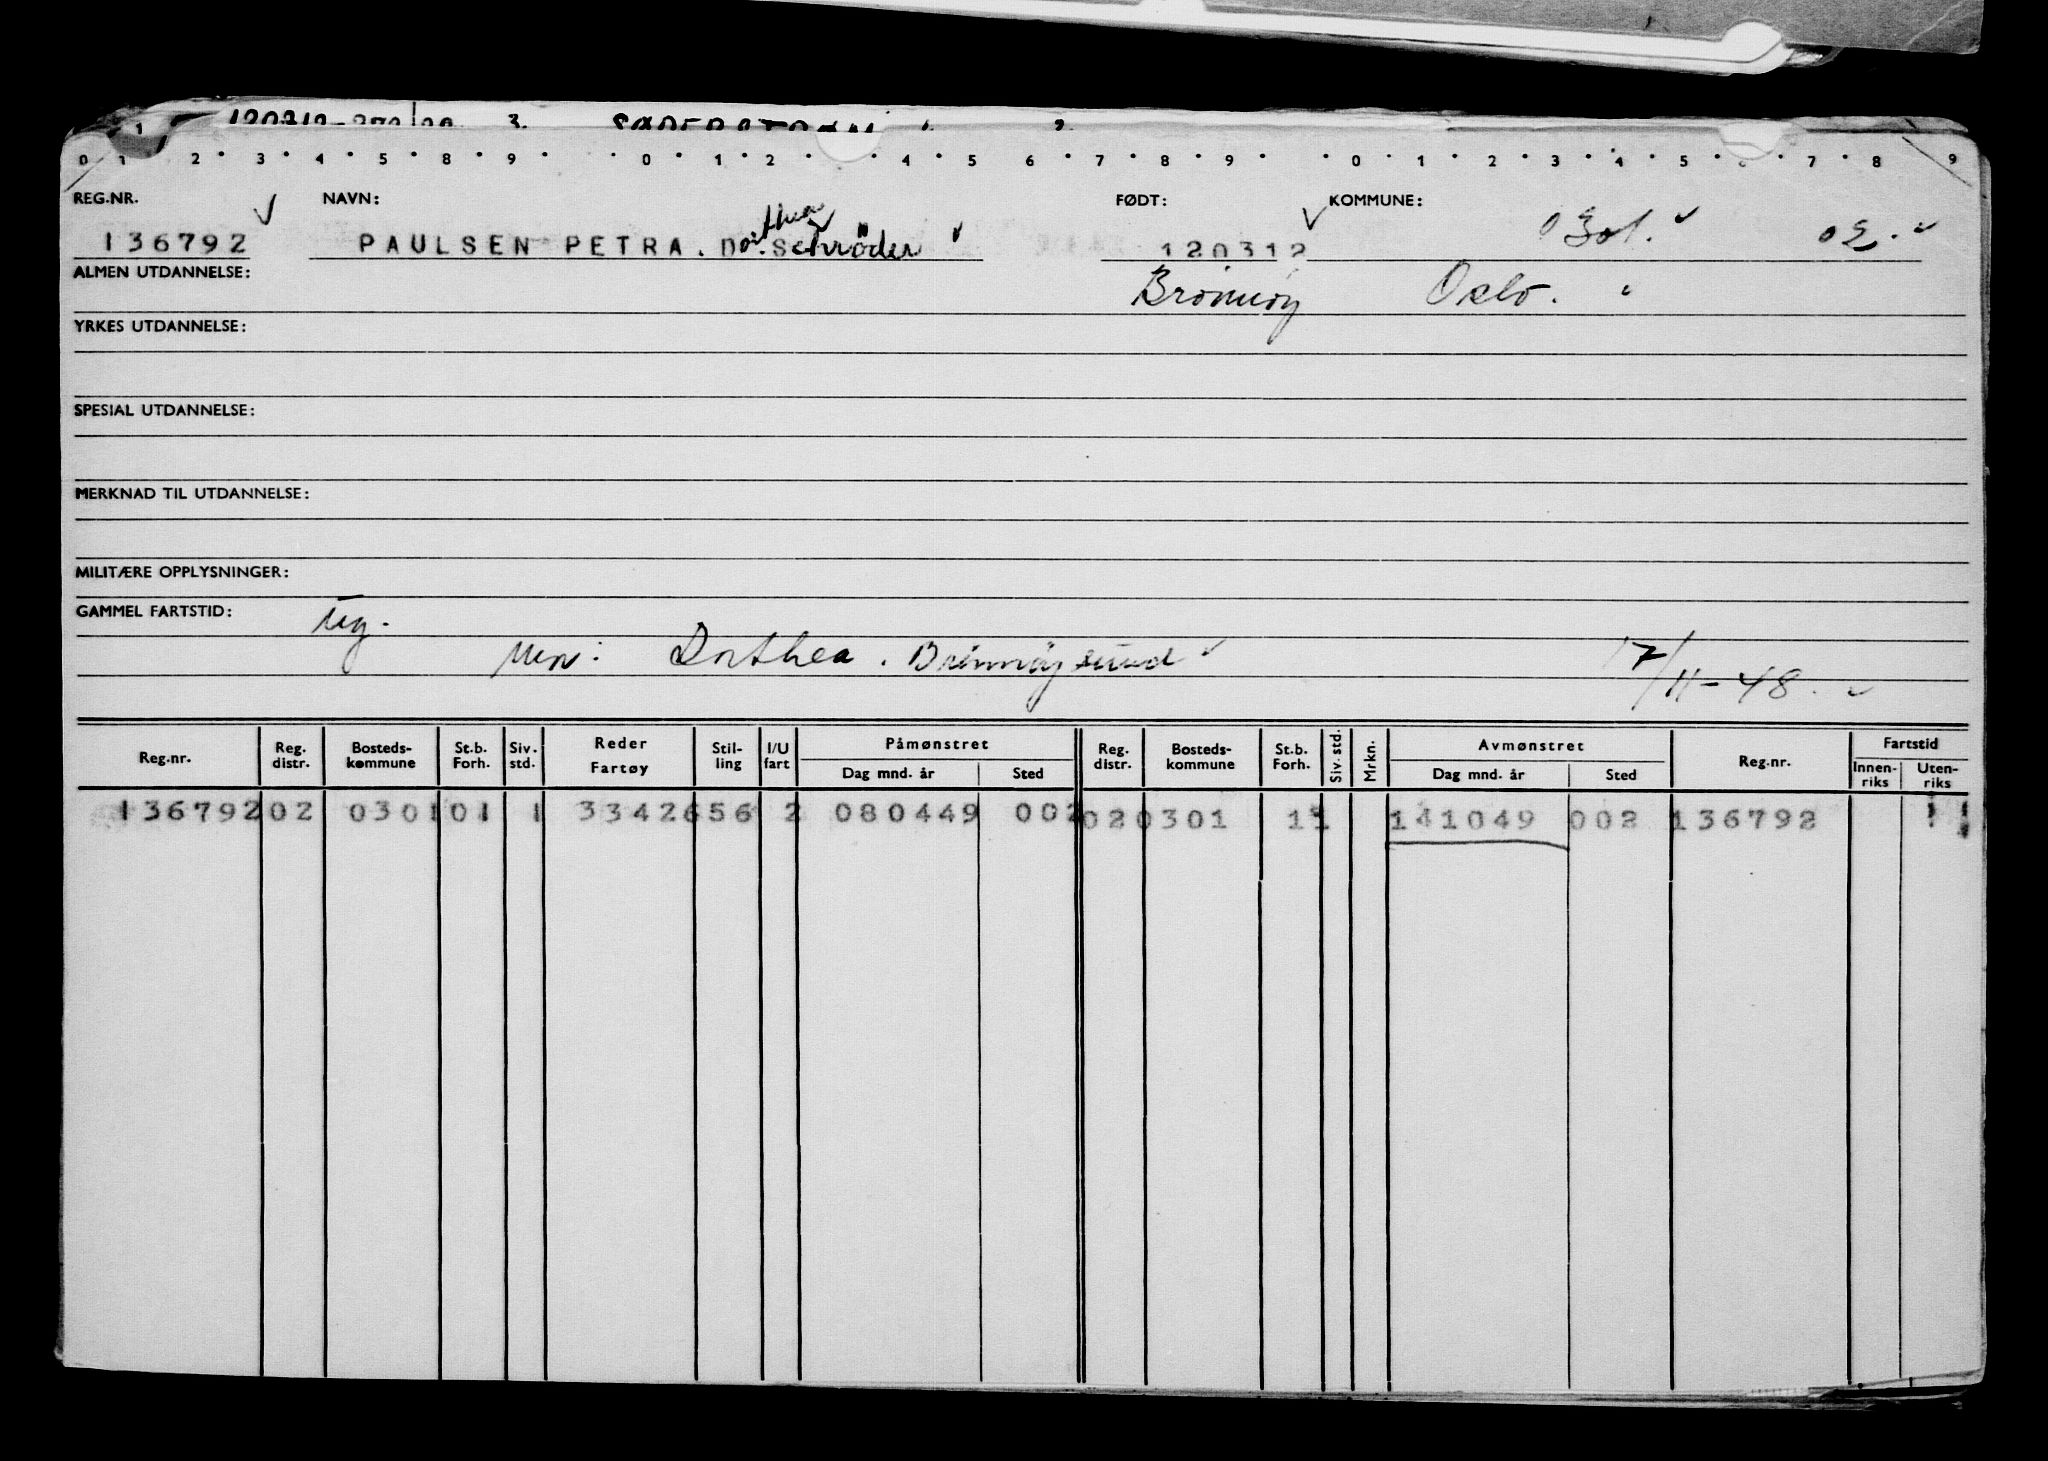 0 1 2 3 4 5 8 9 0 1 2 4 5 6 7 8 9 0 1 2 3 4 5 7 8 9
REG.NR. NAVN: FØDT: KOMMUNE:
136792 PAULSEN PETRA. Dorthea Schrøder 120312 0301. 02.
ALMEN UTDANNELSE: Brønnøy Oslo.
YRKES UTDANNELSE:
SPESIAL UTDANNELSE:
MERKNAD TIL UTDANNELSE:
MILITÆRE OPPLYSNINGER:
GAMMEL FARTSTID:
Dorthea. Brønnøysund 17/11-48.
Reg.nr. Reg. distr. Bosteds- kommune St.b. Forh. Siv. std. Reder Fartøy Stil- ling I/U fart Påmønstret Dag mnd. år Sted Reg. distr. Bosteds- kommune St.b. Forh. Siv. std. Mrkn. Avmønstret Dag mnd. år Sted Reg.nr. Fartstid Innen- riks Uten- riks
136792 02 0301 01 1 33426 56 2 080449 002 02 0301 11 141049 002 136792